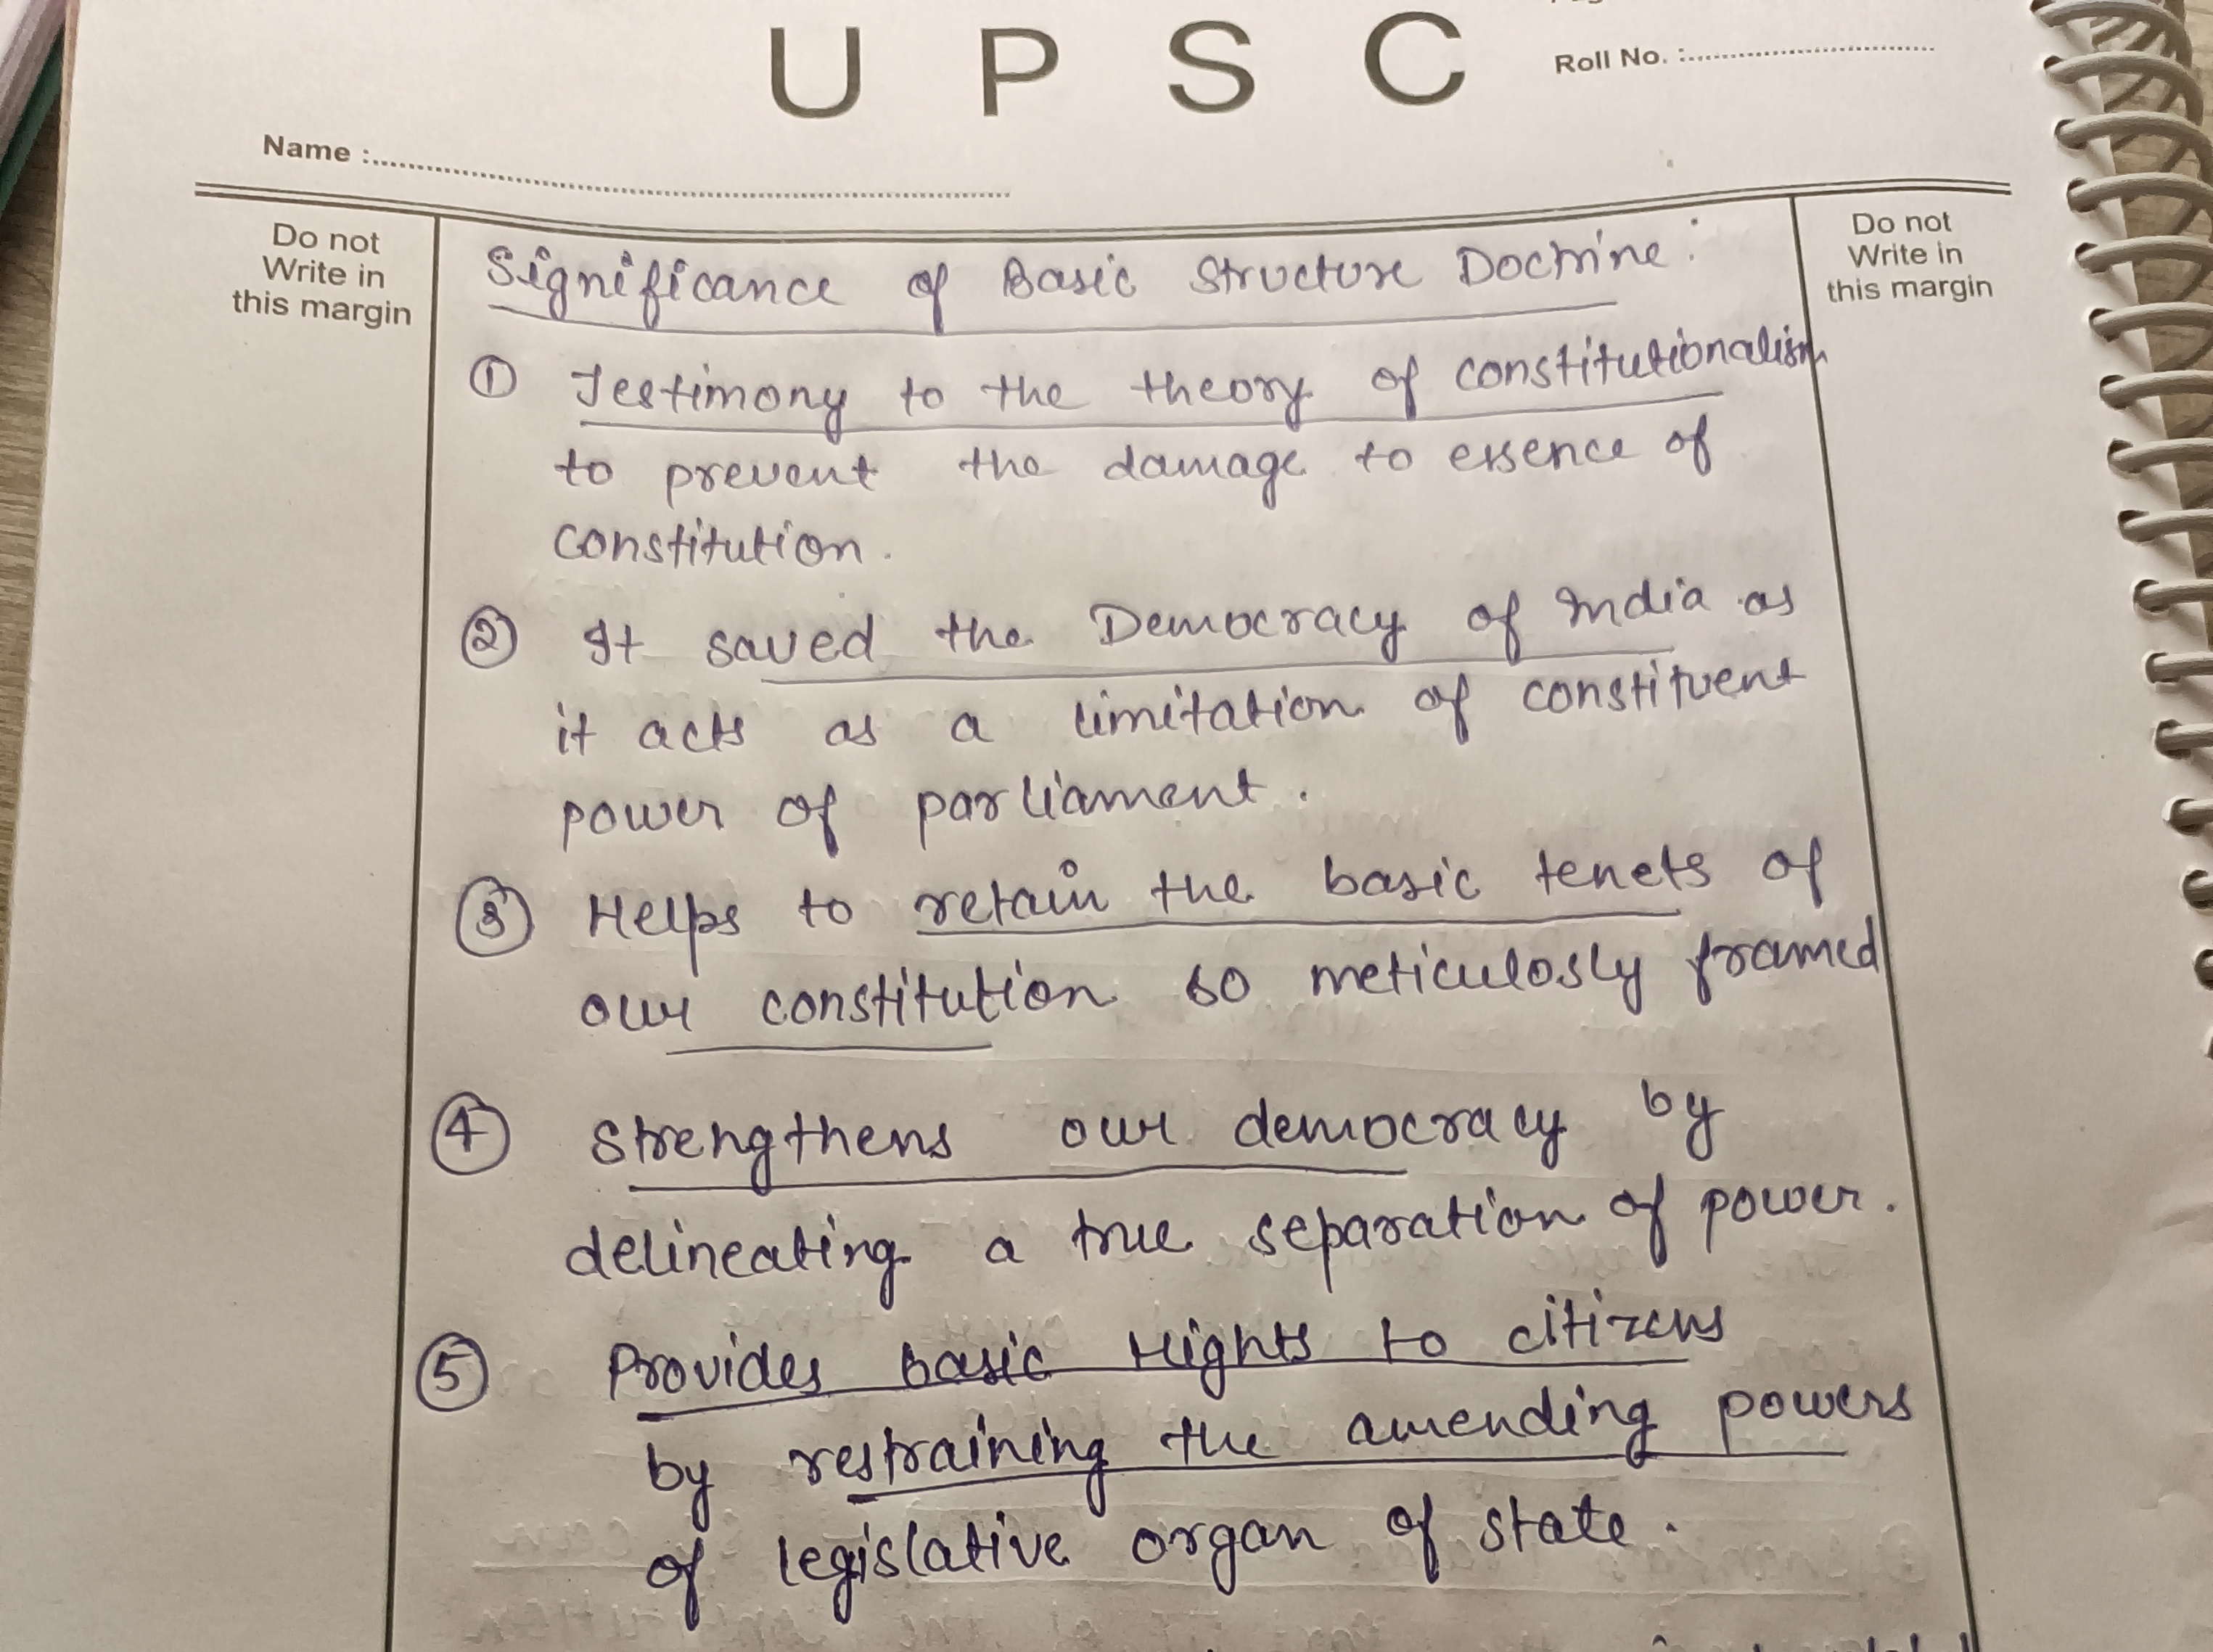 U P S C
Roll No. :
Name :
Do not
Write in
this margin
Do not
Write in
this margin
Significance of Basic Structure Doctrine :
① Testimony to the theory of constitutionalism
to prevent the damage to essence of
constitution.
② It saved the Democracy of India as
it acts as a limitation of constituent
power of parliament.
③ Helps to retain the basic tenets of
our constitution so meticulosly framed
④ Strengthens our democracy by
delineating a true separation of power.
⑤ Provides basic rights to citizens
by restraining the amending powers
of legislative organ of state.